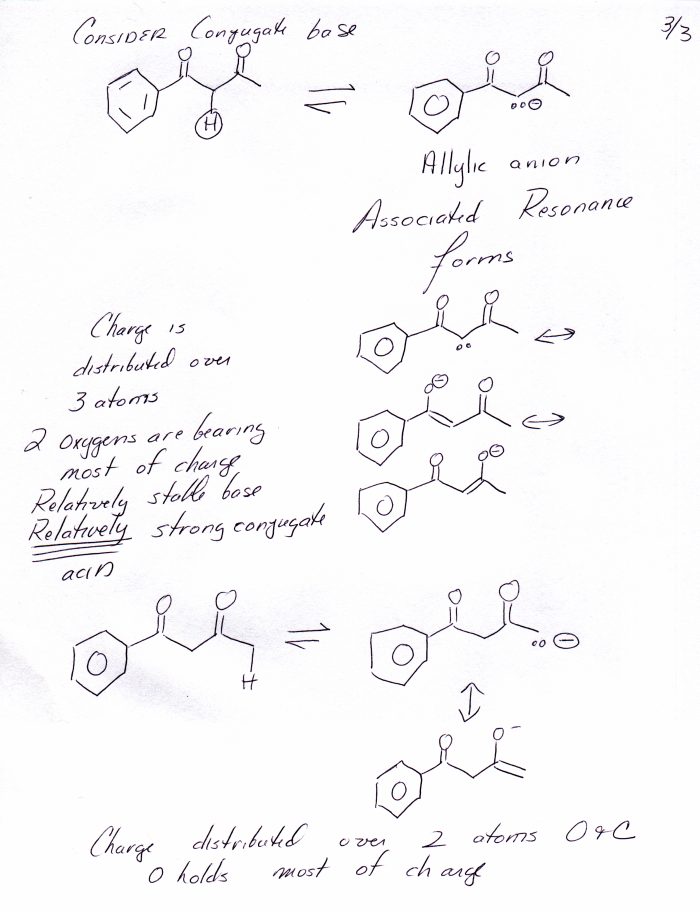 CONSIDER Conjugate base
3/3
O O
H
O O
⊖
Allylic anion
Associated Resonance
forms
O O
Charge is
distributed over
3 atoms
2 oxygens are bearing
most of charge
Relatively stable base
Relatively strong conjugate
acid
O⊖ O
O O⊖
O O
H
O O
⊖
O O⁻
Charge distributed over 2 atoms O & C
O holds most of charge